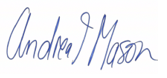 Andrea J Mason